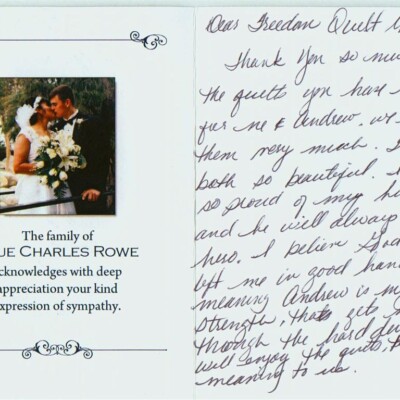 The family of
UE CHARLES ROWE
cknowledges with deep
appreciation your kind
xpression of sympathy.
Dear Freedom Quilt
Thank you so mu
the quilts you have
for me & Andrew. we
them very much.
both so beautiful.
so proud of my h
and he will always
hero. I believe God
left me in good han
meaning Andrew is m
strength, thats gets
through the hard
will enjoy the quilts,
meaning to us.